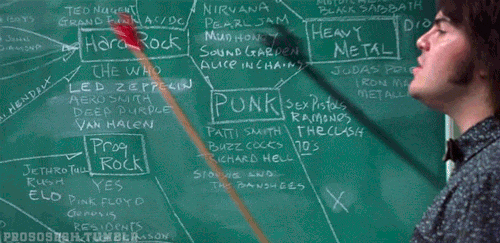 TED Nugent
GRAND FUNK AC/DC
Hard Rock
THE WHO
LED ZEPPELIN
AEROSMITH
DEEP PURPLE
VAN HALEN
NIRVANA
PEARL JAM
MUDHONEY
SOUNDGARDEN
ALICE IN CHAINS
BLACK SABBATH
HEAVY METAL
JUDAS
IRON
METALL
PUNK
SEX PISTOLS
RAMONES
THE CLASH
70s
PATTI SMITH
BUZZCOCKS
RICHARD HELL
SIOUXSIE AND
THE BANSHEES
Prog Rock
JETHRO TULL
RUSH
ELO
YES
PINK FLOYD
GENESIS
RESIDENTS
X
HENDRIX